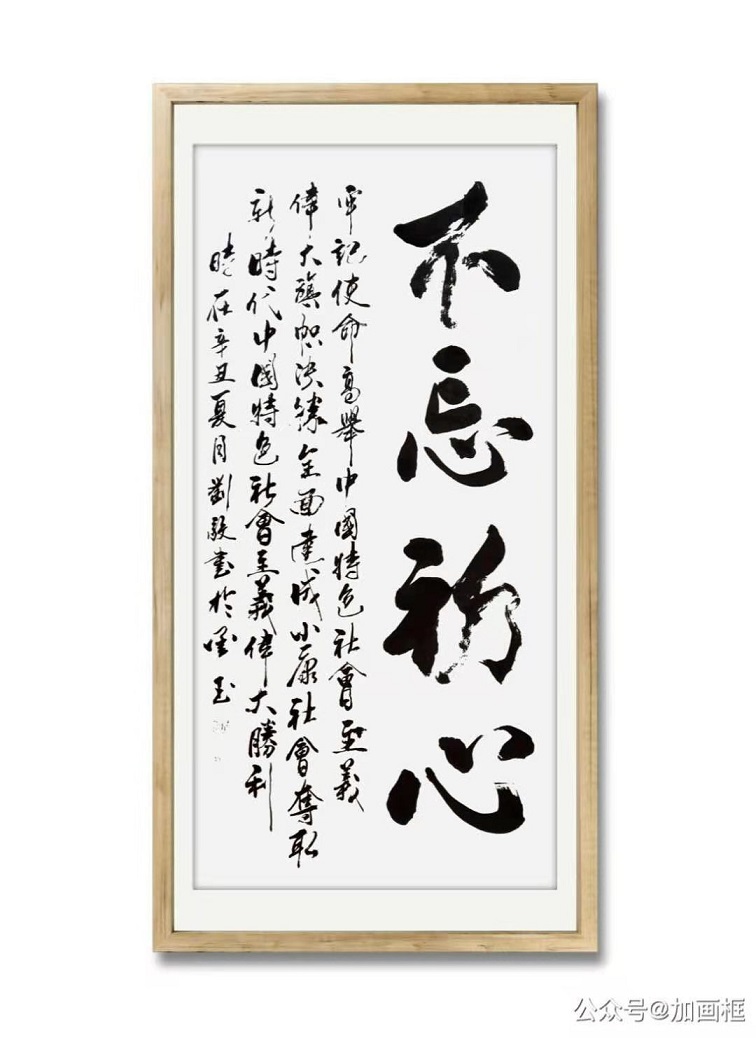 不忘初心
牢记使命高舉中國特色社會主義
偉大旗帜决勝全面建成小康社會奪取
新時代中國特色社會主義偉大勝利
時在辛丑夏月劉毅書於墨玉
公众号@加画框